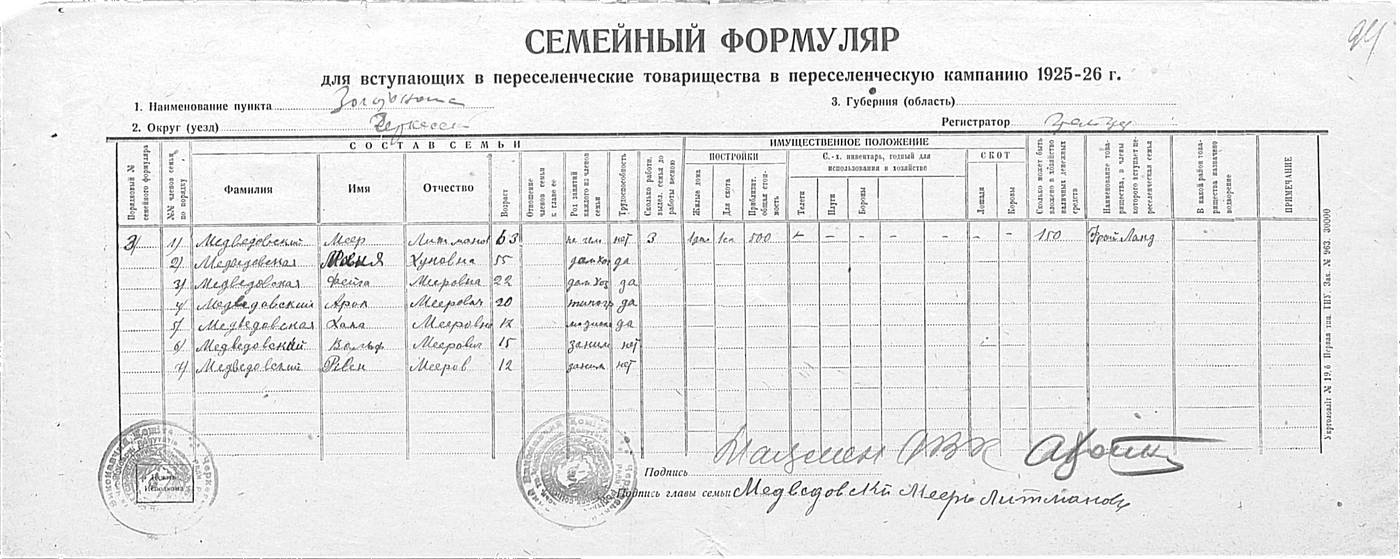 94
СЕМЕЙНЫЙ ФОРМУЛЯР
для вступающих в переселенческие товарищества в переселенческую кампанию 1925-26 г.
1. Наименование пункта Золотоноша
3. Губерния (область)
2. Округ (уезд) Черкасск
Регистратор
СОСТАВ СЕМЬИ
ИМУЩЕСТВЕННОЕ ПОЛОЖЕНИЕ
Порядный № семейного формуляра
№№ членов семьи по порядку
Фамилия
Имя
Отчество
Возраст
Отношение членов семьи к главе ее
Род занятий каждого из членов семьи
Трудоспособность
Сколько работн. выдел. семья до работы весною
ПОСТРОЙКИ
Жилые дома
Для скота
Приблизит. общая стоимость
С.-х. инвентарь, годный для использования в хозяйстве
Телеги
Плуги
Бороны
СКОТ
Лошади
Коровы
Сколько может быть вложено в хозяйство наличных денежных средств
Наименование товарищества, в члены которого вступает переселенческая семья
В какой район товарищества назначено водворение
ПРИМЕЧАНИЕ
3) 1) Медведовский Меер Литманов 63 не чем нет 3 500 – – – – – – – – 150 Фрой Ланд
2) Медведовская 55 дом хоз да
3) Медведовская Фейга Мееровна 22 дом хоз да
4) Медведовский Арон Меерович 20 типогр да
5) Медведовская Хана Мееровна 17 да
6) Медведовский Вольф Меерович 15 заним нет
7) Медведовский Рівен Мееров 12 заним нет
Подпись
Подпись главы семьи Медведовский Меер Литманов
Укрголовліт № 19,6 Первая тип. ГИУ Зак. № 963. 30000